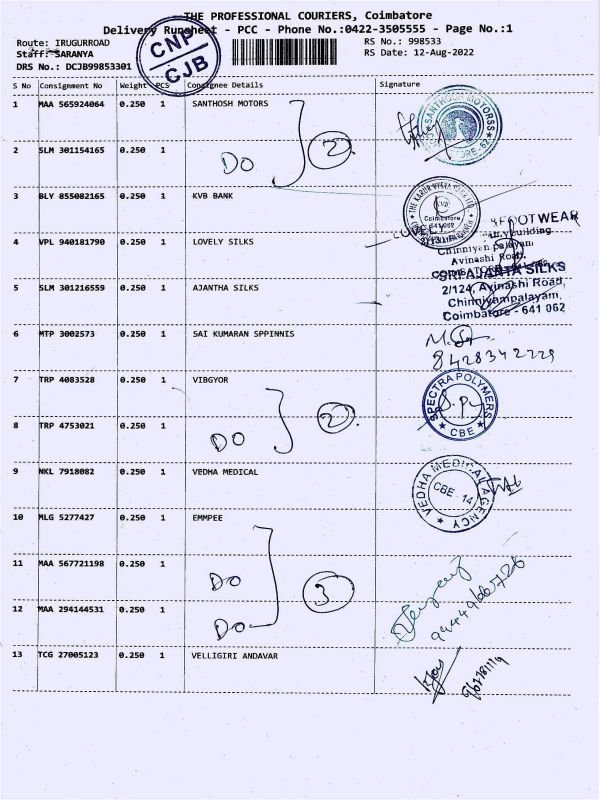 THE PROFESSIONAL COURIERS, Coimbatore
Delivery Runsheet - PCC - Phone No.:0422-3505555 - Page No.:1
Route: IRUGURROAD
RS No.: 998533
Staff: SARANYA
RS Date: 12-Aug-2022
DRS No.: DCJB99853301
CNP
CJB
S No Consignment No Weight PCS Consignee Details Signature
1 MAA 565924064 0.250 1 SANTHOSH MOTORS
SANTHOSH MOTORSS
2 SLM 301154165 0.250 1 DO 2
3 BLY 855082165 0.250 1 KVB BANK
KVB
Coimbatore
641 062
LOVELY FOOTWEAR
4 VPL 940181790 0.250 1 LOVELY SILKS
Chinniyam palayam
Avinashi Road,
SRI AJANTA SILKS
5 SLM 301216559 0.250 1 AJANTHA SILKS
2/124, Avinashi Road,
Chinniyampalayam,
Coimbatore - 641 062
6 MTP 3002573 0.250 1 SAI KUMARAN SPPINNIS
8428342229
7 TRP 4083528 0.250 1 VIBGYOR
SPECTRA POLYMERS
CBE
8 TRP 4753021 0.250 1 DO 2
9 NKL 7918082 0.250 1 VEDHA MEDICAL
VEDHA MEDICAL AGENCY
CBE - 14
10 MLG 5277427 0.250 1 EMMPEE
11 MAA 567721198 0.250 1 DO 3
12 MAA 294144531 0.250 1 DO
13 TCG 27005123 0.250 1 VELLIGIRI ANDAVAR